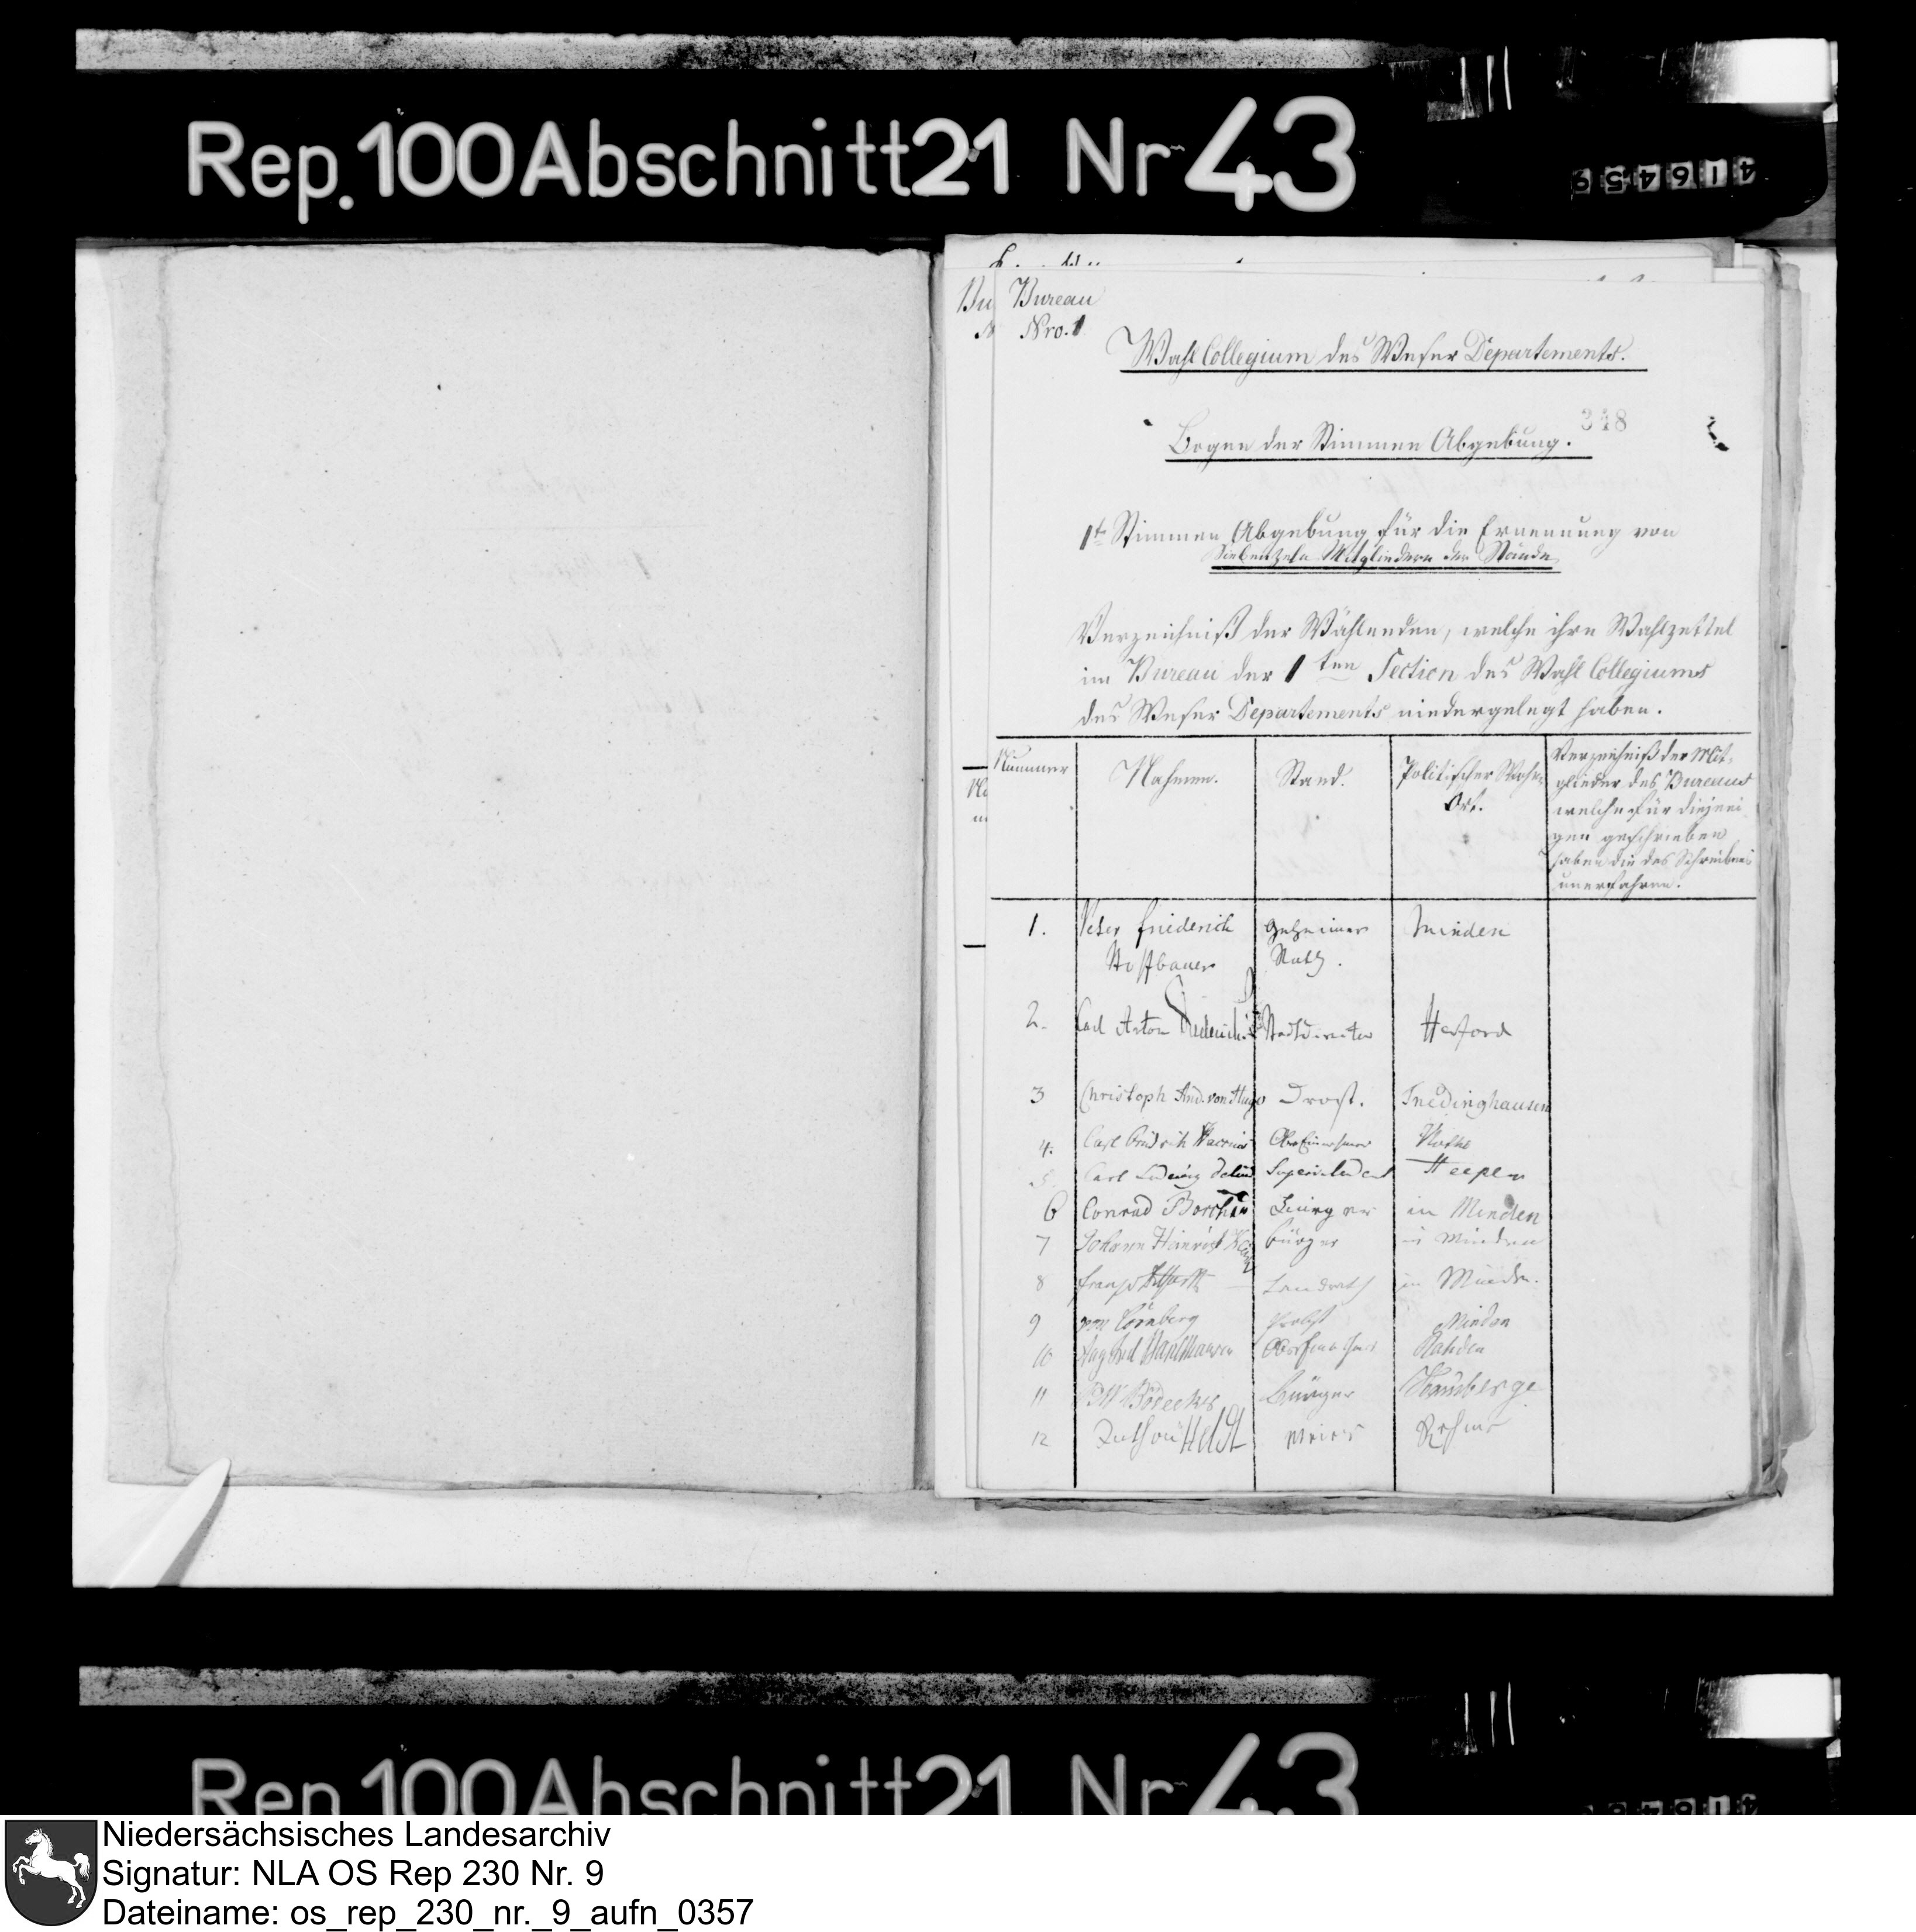 Rep. 100 Abschnitt 21 Nr 43
416459
Bureau
Nro. 1
Wahl Collegium des Weser Departements.
348
Bogen der Stimmen Abgebung.
1te Stimmen Abgebung für die Ernennung von
Siebenzehn Mitgliedern der Stände
Verzeichniß der Wählenden, welche ihre Wahlzettel
im Bureau der 1ten Section des Wahl Collegiums
des Weser Departements niedergelegt haben.
Nummer
Nahmen.
Stand.
Politischer Wohn
Ort.
Verzeichniß der Mit-
glieder des Bureaus
welche für diejeni
gen geschrieben
haben die des Schreibens
unerfahren.
1. Peter Friederich Geheimer Minden
Rath.
2. Carl Anton Diederichs Stadtdirector Herford
3 Christoph von Drost. Friedinghausen
4. Carl
5. Carl Ludwig Superintendent Heepen
6 Conrad Borchers Bürger in Minden
7 Johann Heinrich Bürger in Minden
8 Franz Landrath in Minden.
9 von Probst Minden
10 Rahden
11 Bürger Hausberge
12 Meier Rehme
Rep. 100 Abschnitt 21 Nr 43
Niedersächsisches Landesarchiv
Signatur: NLA OS Rep 230 Nr. 9
Dateiname: os_rep_230_nr._9_aufn_0357